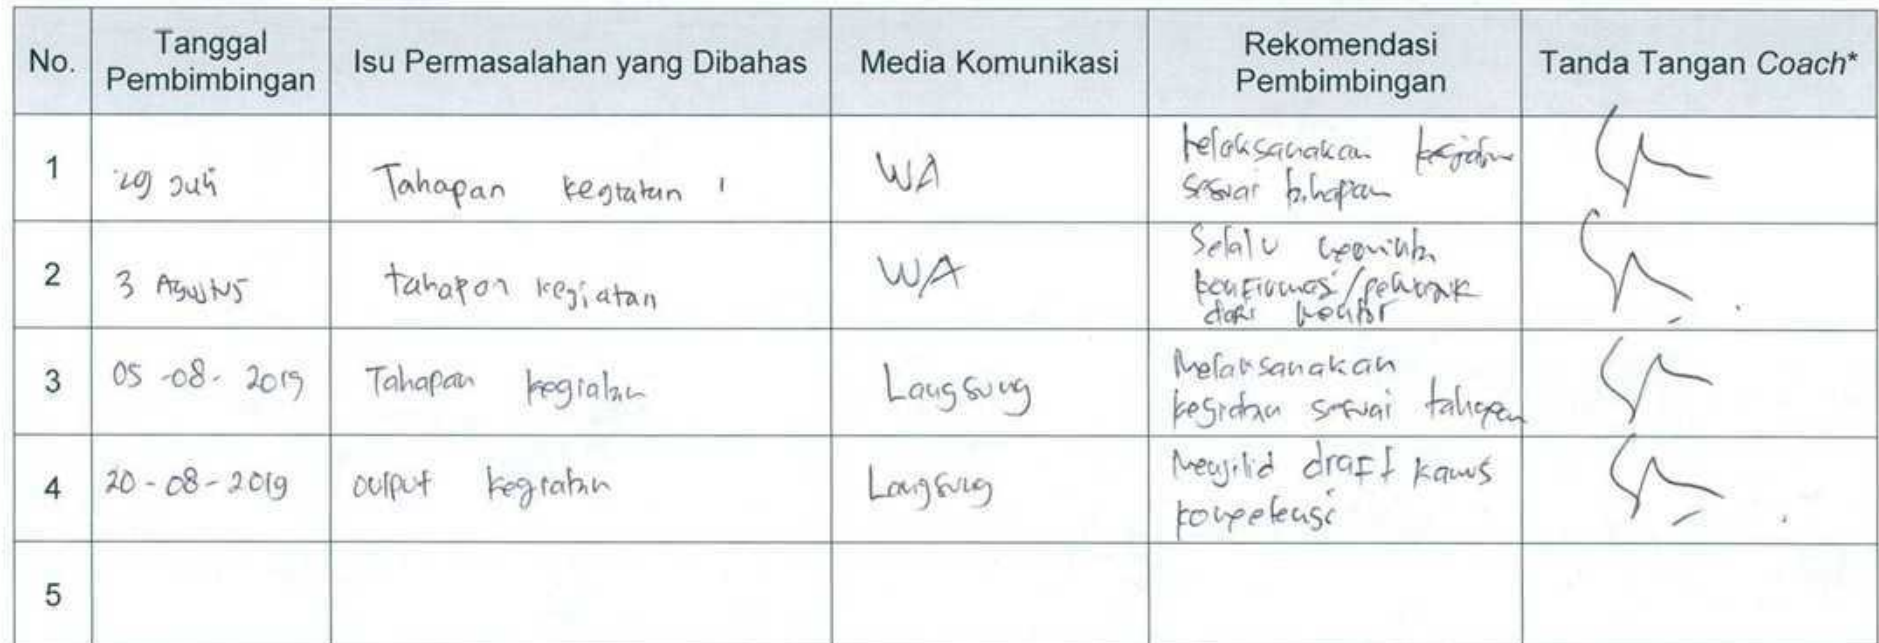 No. Tanggal Pembimbingan Isu Permasalahan yang Dibahas Media Komunikasi Rekomendasi Pembimbingan Tanda Tangan Coach*
1 29 Juli Tahapan kegiatan 1 WA kegiatan
sesuai tahapan
2 3 Agustus tahapan kegiatan WA Selalu meminta
konfirmasi/
dari mentor
3 05-08-2019 Tahapan kegiatan Langsung Melaksanakan
kegiatan sesuai tahapan
4 20-08-2019 output kegiatan Langsung Menjilid draft kamus
kompetensi
5